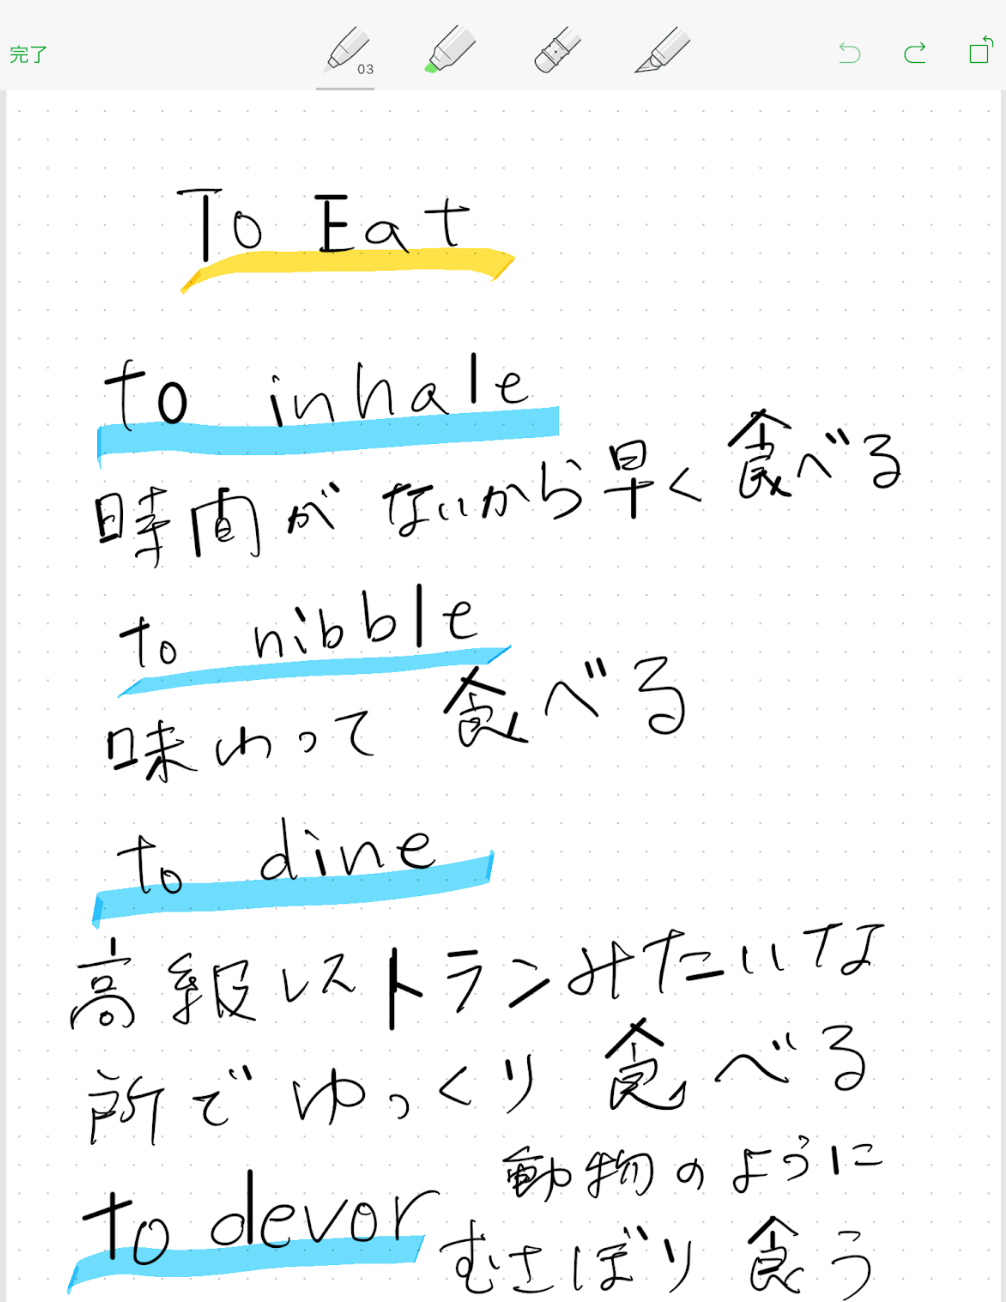 完了
03
To Eat
to inhale
時間がないから早く食べる
to nibble
味わって食べる
to dine
高級レストランみたいな
所でゆっくり食べる
to devor
動物のように
むさぼり食う